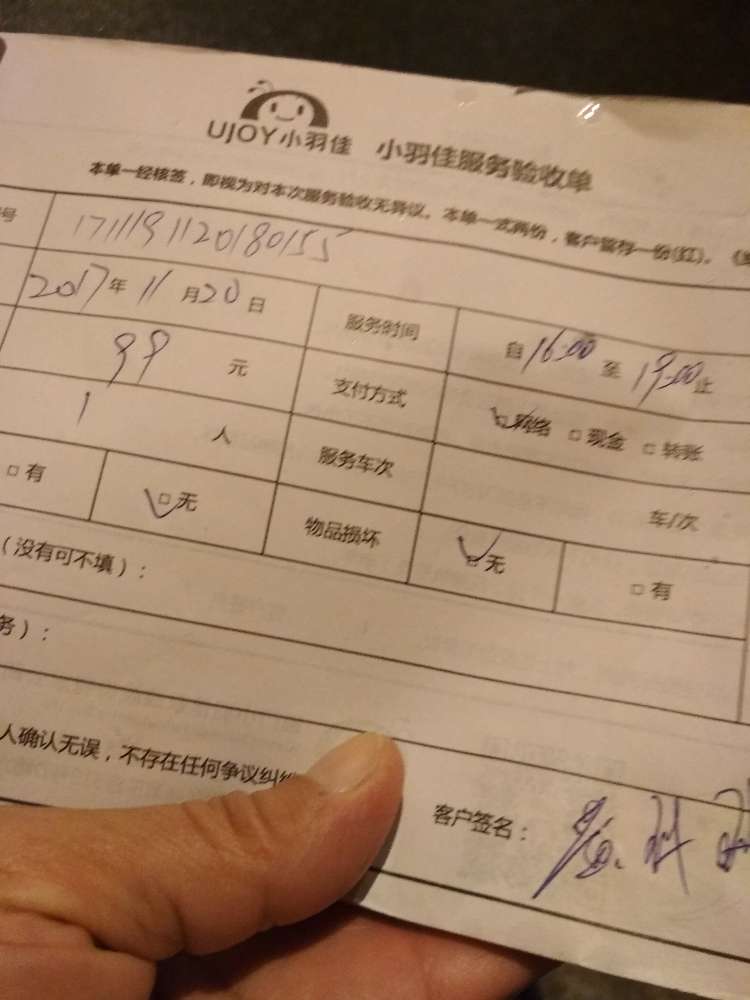 UJOY小羽佳 小羽佳服务验收单
本单一经核签，即视为对本次服务验收无异议。本单一式两份，客户留存一份(红)。
号 1711191120180155
2017年11月20日 服务时间 自16:00至19:00止
99元 支付方式 □网络 □现金 □转账
1人 服务车次 车/次
□有 □无 物品损坏 □无 □有
（没有可不填）：
务）：
人确认无误，不存在任何争议纠
客户签名：